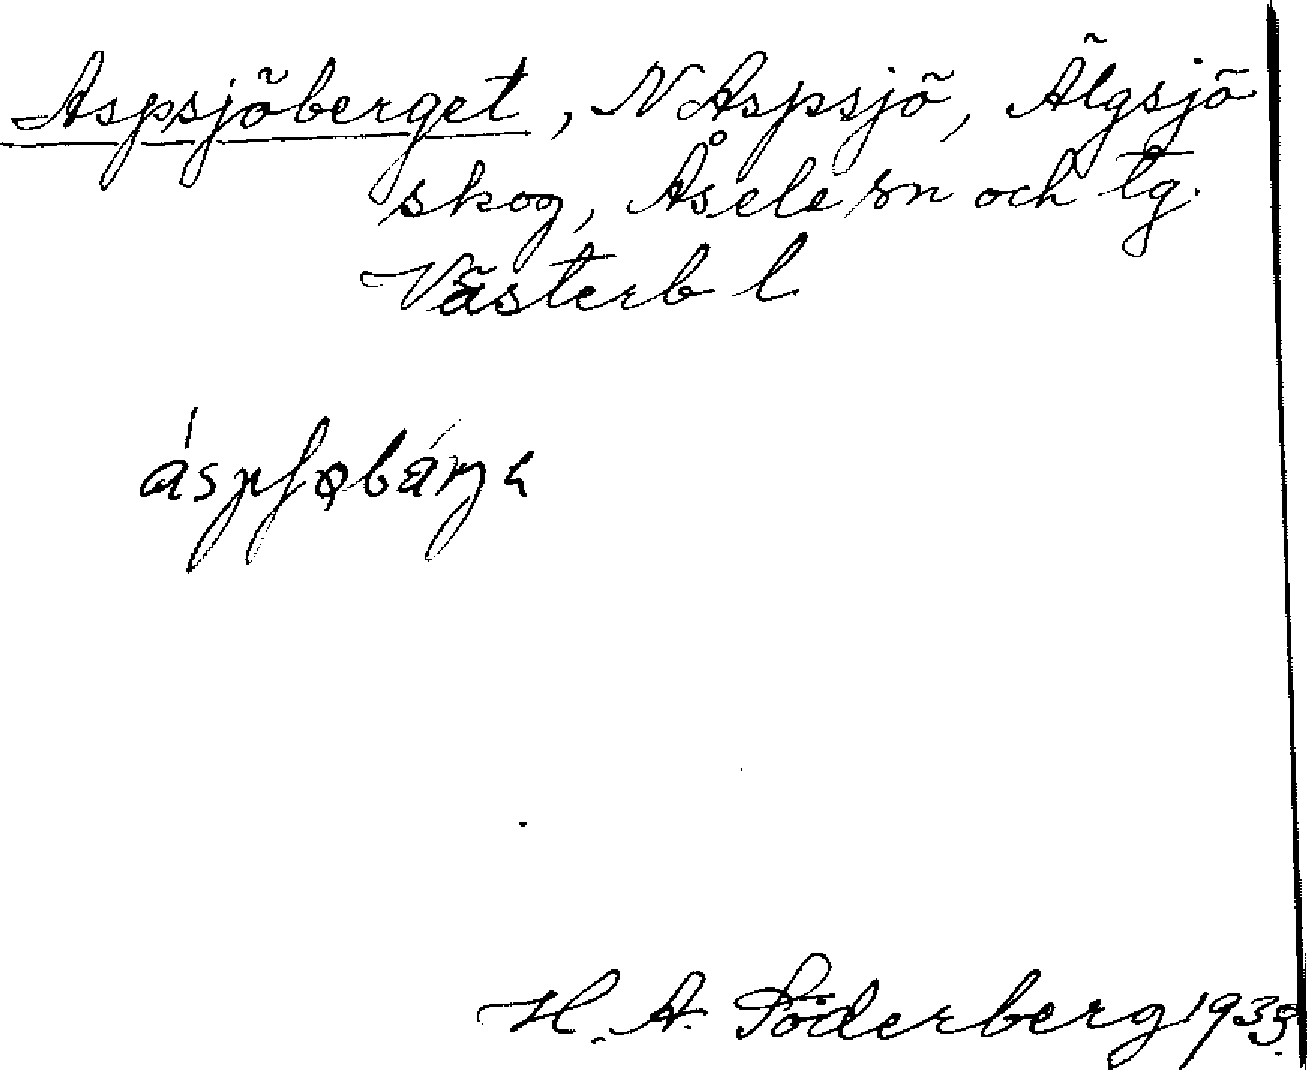 Aspsjöberget, N Aspsjö, Älgsjö
skog, Åsele sn och tg.
Västerb l
H. A. Söderberg 1935